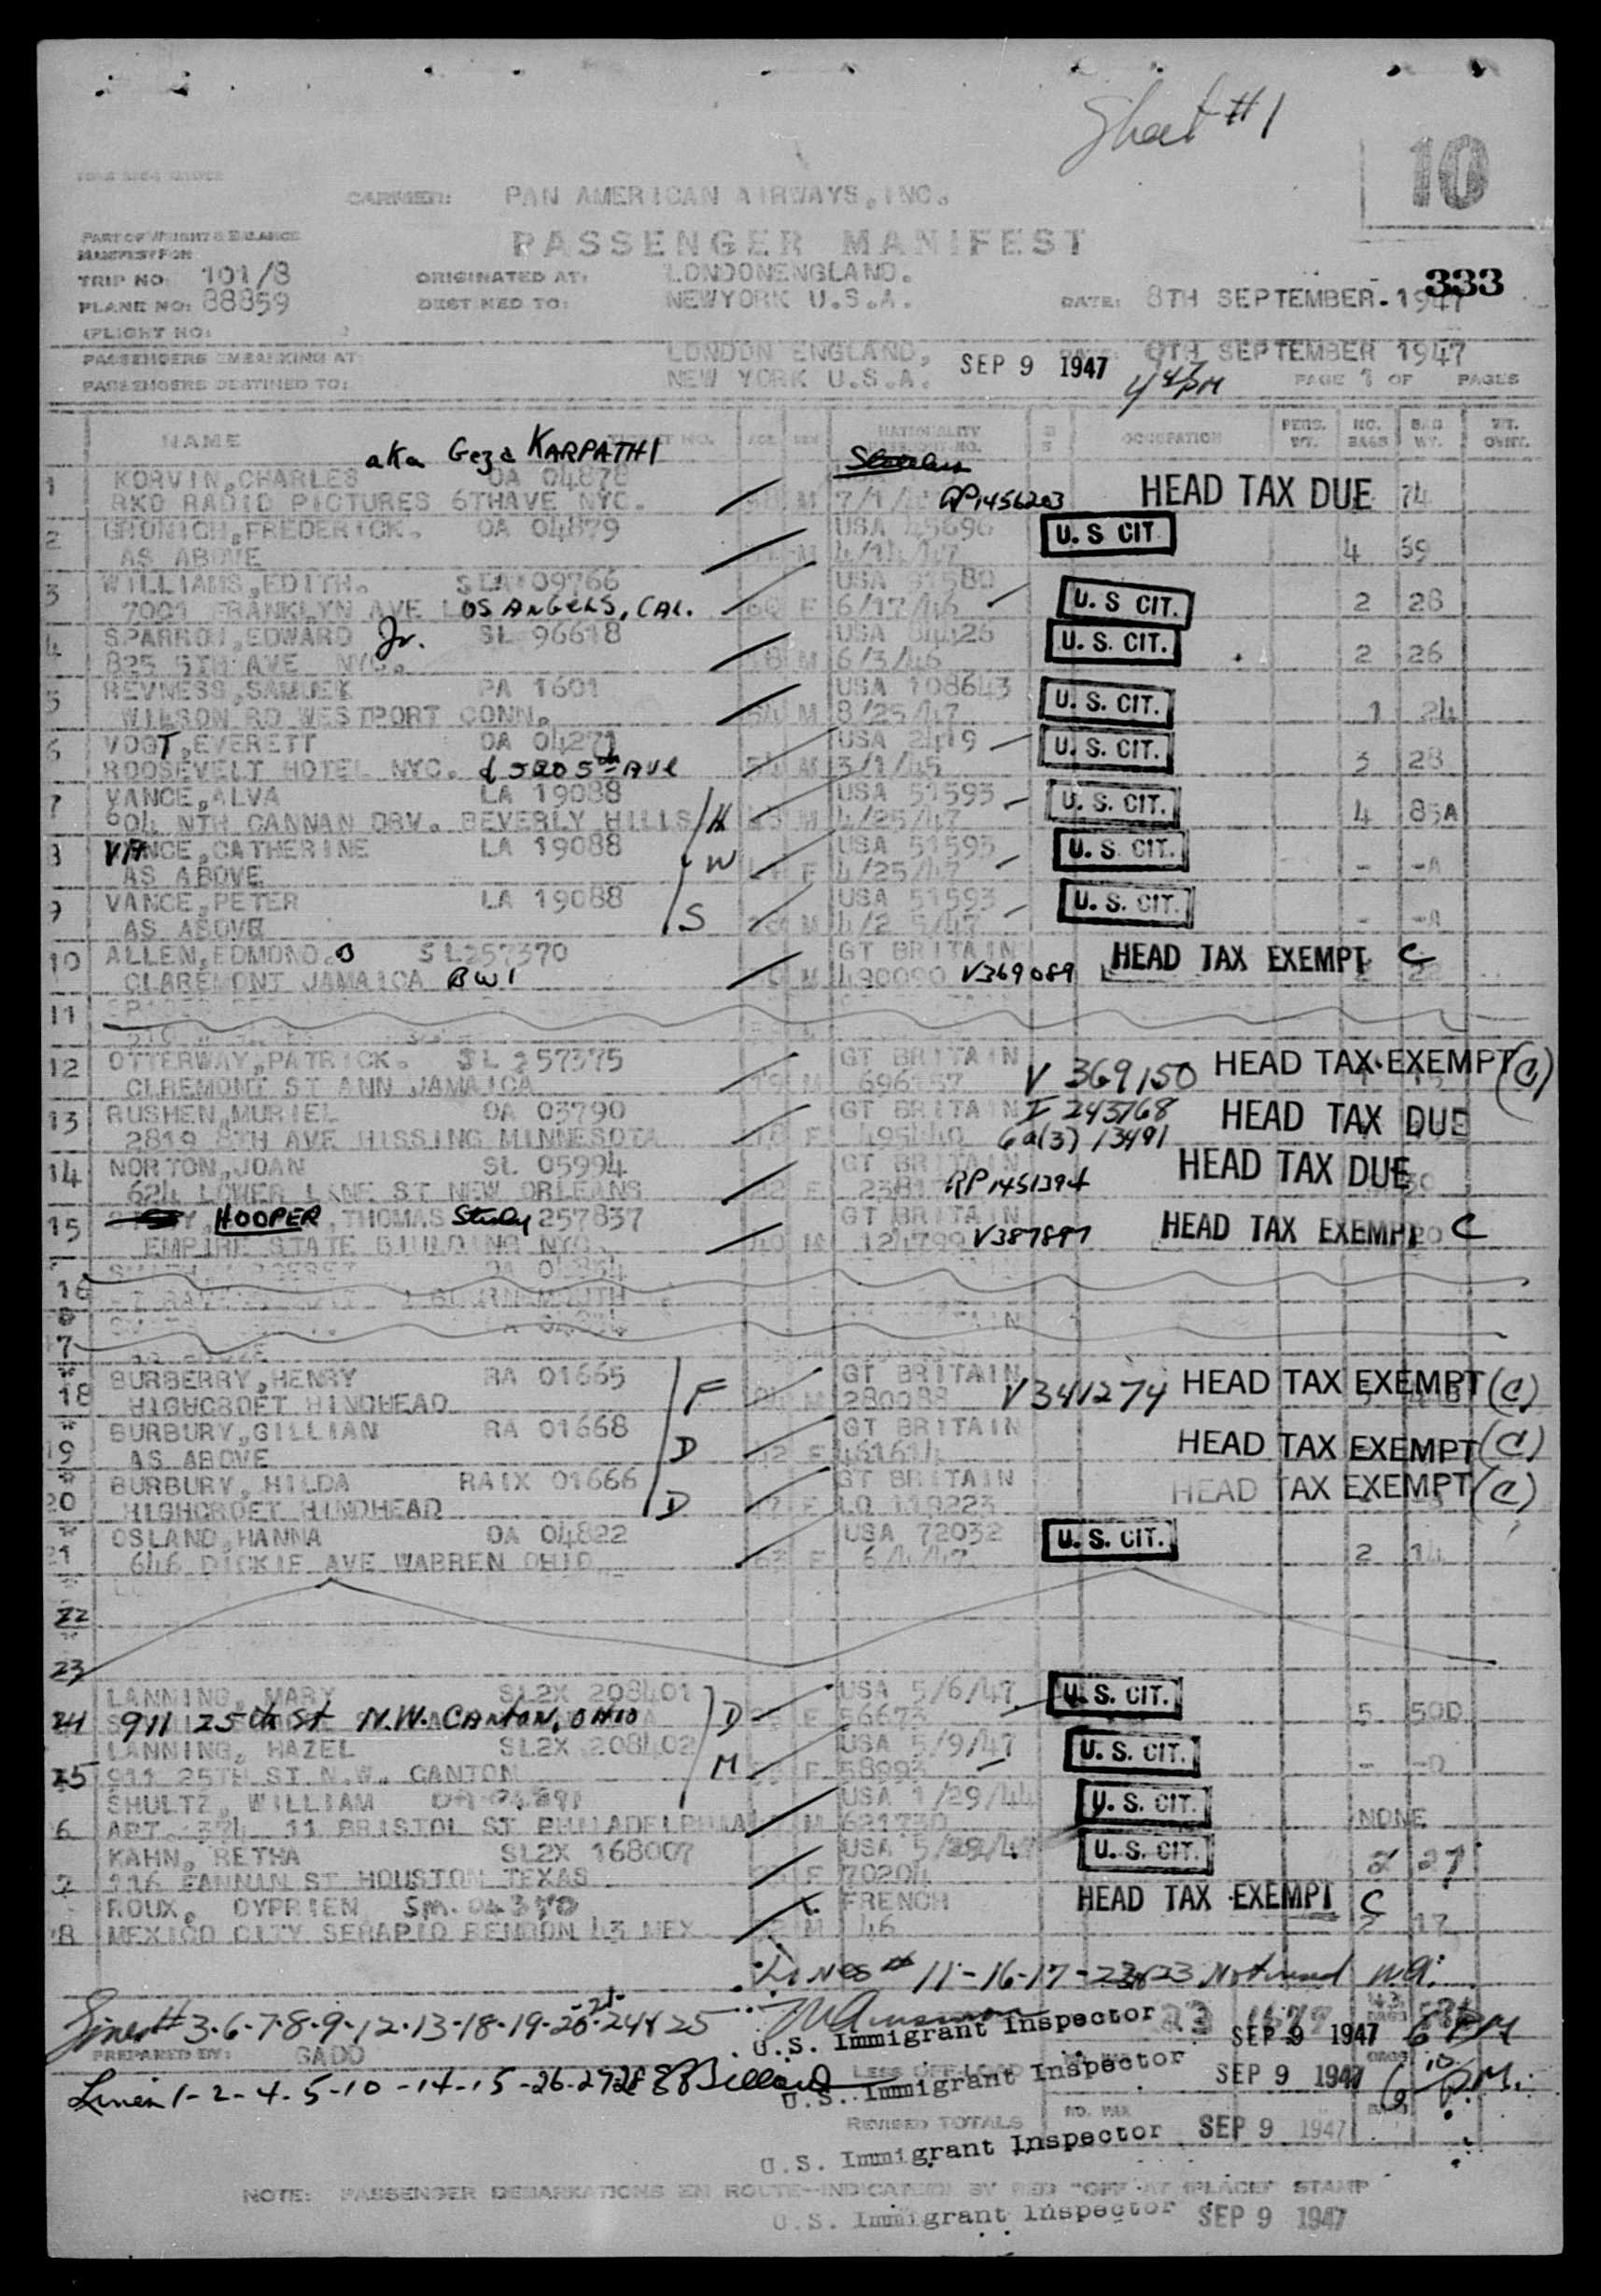 Sheet #1
10
CARRIER: PAN AMERICAN AIRWAYS, INC.
PASSENGER MANIFEST
PART OF WEIGHT & BALANCE
MANIFEST FOR
TRIP NO: 101/8 ORIGINATED AT: LONDONENGLAND. 333
PLANE NO: 88859 DESTINED TO: NEWYORK U.S.A. DATE: 8TH SEPTEMBER. 1947
FLIGHT NO:
PASSENGERS EMBARKING AT: LONDON ENGLAND, SEP 9 1947 DATE: 9TH SEPTEMBER 1947
PASSENGERS DESTINED TO: NEW YORK U.S.A. 4 47 PM PAGE 1 OF PAGES
NAME AGE SEX NATIONALITY OCCUPATION PERS. WT. NO. BAGS BAG WT. WT. OVWT.
aka Geza KARPATHI
1 KORVIN, CHARLES OA 04878
RKO RADIO PICTURES 6THAVE NYC. M RP1456203 HEAD TAX DUE 74
2 GRUNICH, FREDERICK. OA 04879 USA 45696 U. S CIT.
AS ABOVE M 4/14/47 4 59
3 WILLIAMS, EDITH. SLA 09766 USA 51580
7001 FRANKLYN AVE LOS ANGELS, CAL. F 6/17/46 U. S CIT. 2 28
4 SPARROW, EDWARD Jr. SL 96618 USA 84426 U. S. CIT.
825 5TH AVE NYC. M 6/3/46 2 26
5 REVNESS, SAMUEL PA 1601 USA 108643 U. S. CIT.
WILSON RD WESTPORT CONN. M 8/25/47 1 24
6 VOGT, EVERETT OA 04271 USA 2419 U. S. CIT.
ROOSEVELT HOTEL NYC. & 5205th AVE M 3/1/45 3 28
7 VANCE, ALVA LA 19088 USA 51593 U. S. CIT.
604 NTH CANNAN DRV. BEVERLY HILLS H M 4/25/47 4 85A
8 VANCE, CATHERINE LA 19088 USA 51593 U. S. CIT.
AS ABOVE W F 4/25/47 - -A
9 VANCE, PETER LA 19088 USA 51593 U. S. CIT.
AS ABOVE S M 4/2 5/47 - -A
10 ALLEN, EDMOND. O SL257370 GT BRITAIN HEAD TAX EXEMPT C
CLAREMONT JAMAICA BWI M 490090 V369089
11
12 OTTERWAY, PATRICK. SL 257375 GT BRITAIN V 369150 HEAD TAX EXEMPT (C)
CLREMONT ST ANN JAMAICA 19 M 696157
13 RUSHEN, MURIEL OA 03790 GT BRITAIN I 243768 HEAD TAX DUE
2819 8TH AVE HISSING MINNESOTA F 495440 6a(3) 13491
14 NORTON, JOAN SL 05994 GT BRITAIN HEAD TAX DUE
624 LOWER LINE ST NEW ORLEANS F RP1451394
15 HOOPER, THOMAS 257837 GT BRITAIN HEAD TAX EXEMPT C
EMPIRE STATE BUILDING NYC. 40 M 124799 V387897
16
17
18 BURBERRY, HENRY RA 01665 GT BRITAIN V341274 HEAD TAX EXEMPT (C)
HIGHCROET HINDHEAD F M 280088
19 BURBURY, GILLIAN RA 01668 GT BRITAIN HEAD TAX EXEMPT (C)
AS ABOVE D 12 F 461614
20 BURBURY, HILDA RAIX 01666 GT BRITAIN HEAD TAX EXEMPT (C)
HIGHCROET HINDHEAD D F LO 119223
21 OSLAND, HANNA OA 04822 USA 72032 U. S. CIT.
646 DICKIE AVE WARREN OHIO 63 F 6/4/47 2 14
22
23
LANNING, MARY SL2X 208401 USA 5/6/47 U. S. CIT.
24 911 25th St N.W. CANTON, OHIO D F 56673 5 50D
LANNING, HAZEL SL2X 208402 USA 5/9/47 U. S. CIT.
25 911 25TH ST N.W. CANTON M F 58993 - -D
SHULTZ, WILLIAM USA 1/29/44 U. S. CIT.
6 APT. 374 11 BRISTOL ST PHILADELPHIA M 621730 NONE
KAHN, RETHA SL2X 168007 USA 5/29/47 U. S. CIT.
7 116 FANNIN ST HOUSTON TEXAS F 70204 2 27
ROUX, CYPRIEN SM. 04370 FRENCH HEAD TAX EXEMPT C
8 MEXICO CITY SERAPIO RENDON 43 MEX M 46 2 17
Lines # 11-16-17-22&23 Not used
Lines # 3-6-7-8-9-12-13-18-19-20-21-24&25
U.S. Immigrant Inspector SEP 9 1947 6 PM
PREPARED BY: SADO
LESS OFF-LOAD
Lines 1-2-4-5-10-14-15-26-27&28
U.S. Immigrant Inspector SEP 9 1947 6 10 P.M.
REVISED TOTALS NO. PAX
U.S. Immigrant Inspector SEP 9 1947
NOTE: PASSENGER DEBARKATIONS EN ROUTE-INDICATED BY RED "OFF AT (PLACE)" STAMP
U.S. Immigrant Inspector SEP 9 1947